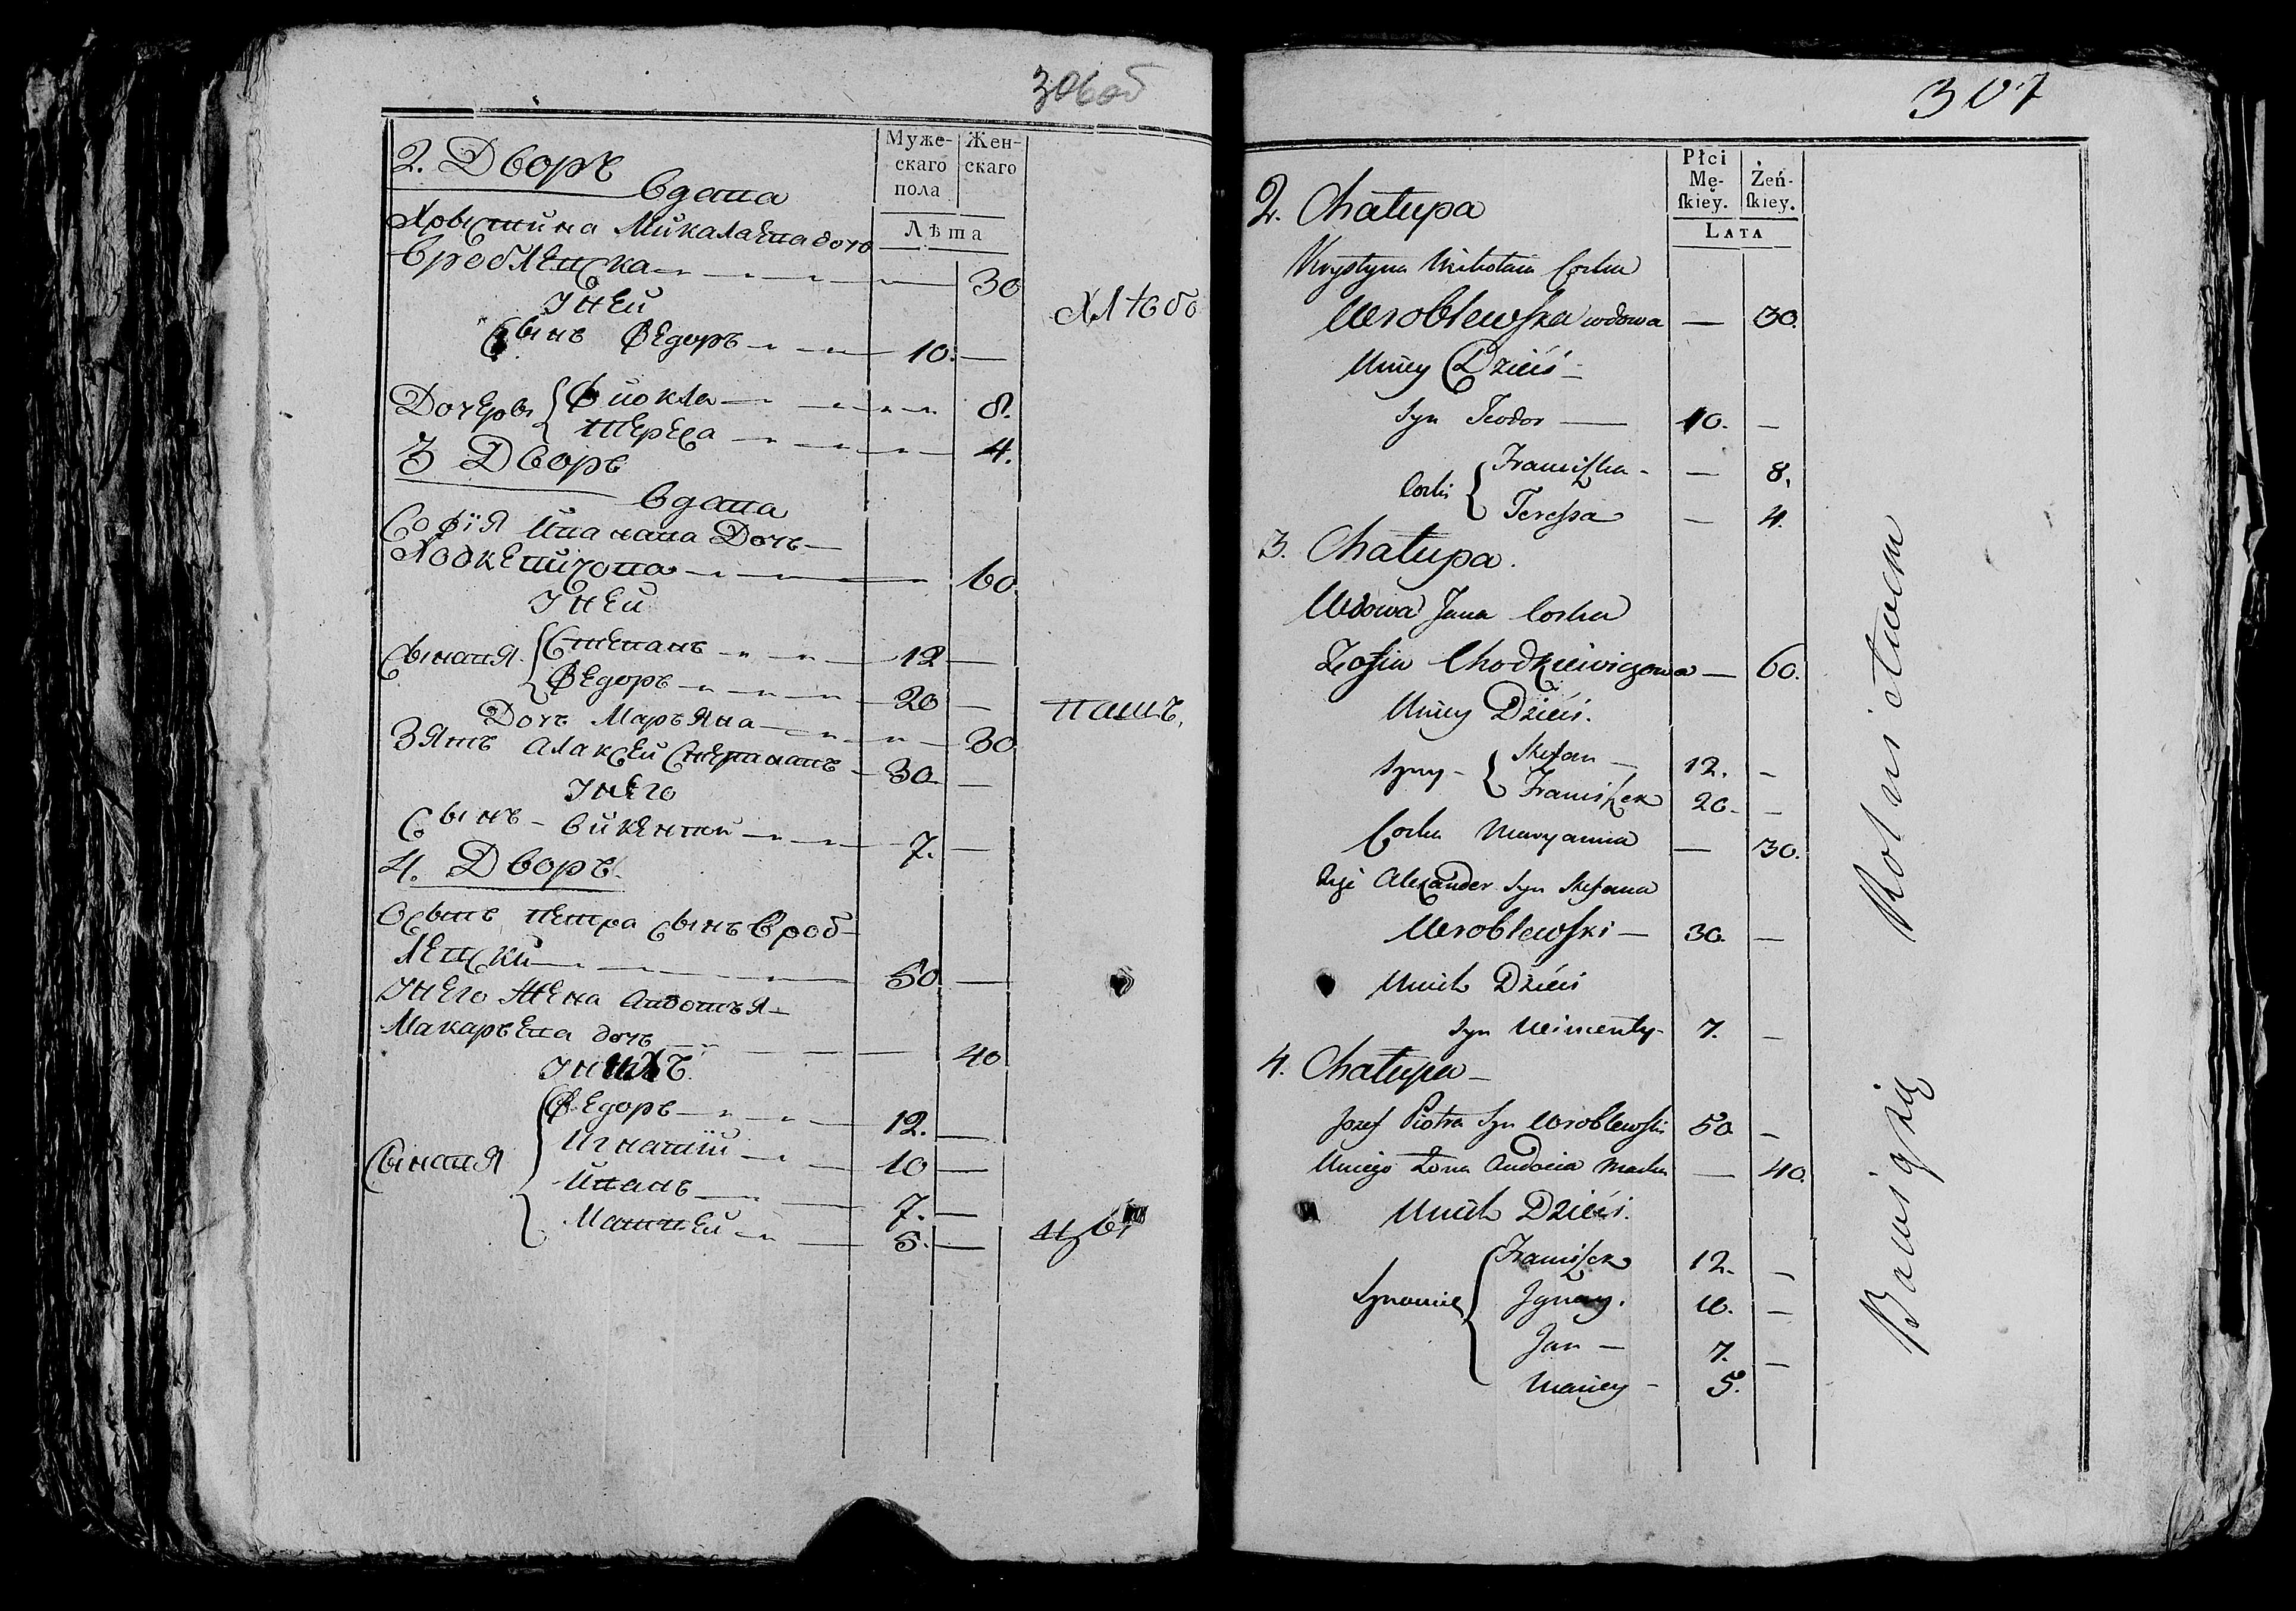 306об
Муже-
скаго
пола
Жен-
скаго
Лѣта
2. Дворъ
вдава
Хрыстина Микалаева дочь
Вроблевска 30
У ней
Сынъ Федоръ 10. —
Дочеры { Фиокла 8.
Тереса 4.
3 Дворъ
вдава
Софія Ивановна Дочь
Ходкевичова 60.
У ней
Сыновя { Степанъ 12 —
Федоръ 20 —
Дочъ Марьяна 30
Зять Алаксей 30. —
У него
Сынъ - Викентий 7. —
4. Дворъ
Осыпъ Петра сынъ Вроб-
левски 50 —
У него Жена Авдотъя
Макаръева дочъ 40
У нихъ
Сыновя { Федоръ 12. —
Игнатій 10 —
Иванъ 7. —
Матвей 5. —
хлѣбо
паш
цы
307
Płci
Mę-
ſkiey.
Żeń-
ſkiey.
LATA
2. Chałupa
Krystyna Mikołaia Corka
Wroblewſka wdowa — 30.
Uniey Dzieci
Syn Teodor — 10. —
Corki { Franciſzka — 8.
Tereſsa — 4.
3. Chałupa.
Wdowa Jana Corka
Zofia Chodkiewiczowa — 60.
Uniey Dzieci.
Syny { Stefan — 12. —
Franciſzek 20. —
Corka Maryanna — 30.
Alexander Syn Stefana
Wroblewſki — 30. —
Unich Dzieci
Syn Wincenty 7. —
4. Chałupa —
Jozef Piotra Syn Wroblewſki 50 —
Uniego Zona Audocia — 40.
Unich Dzieci.
Synowie { Franciſzek 12. —
Jgnacy. 10. —
Jan — 7. —
Maciey — 5.
Bawią się Rolnictwem